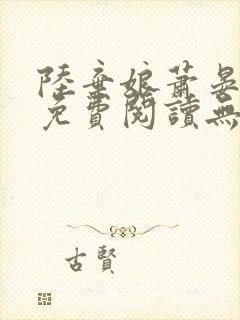 陸棄娘蕭晏
免費閱讀無
古賢